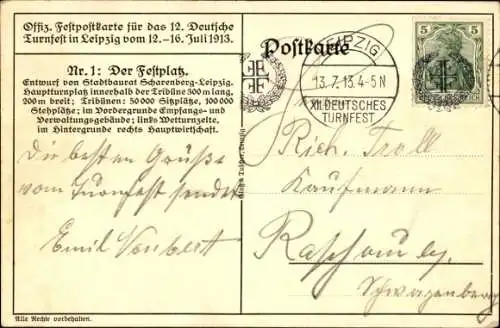 Offiz. Festpostkarte für das 12. Deutsche
Turnfest in Leipzig vom 12.-16. Juli 1913.
Nr. 1: Der Festplatz.
Entwurf von Stadtbaurat Scharenberg-Leipzig.
Hauptturnplatz innerhalb der Tribüne 300 m lang,
200 m breit; Tribünen: 30000 Sitzplätze, 100000
Stehplätze; im Vordergrunde Empfangs- und
Verwaltungsgebäude; links Wetturnzelte,
im Hintergrunde rechts Hauptwirtschaft.
Die besten Grüße
vom Turnfest sendet
Emil Neubert
Alle Rechte vorbehalten.
Postkarte
LEIPZIG
13.7.13.4-5N
XII.DEUTSCHES
TURNFEST
5 5
Rich. Troll
Kaufmann